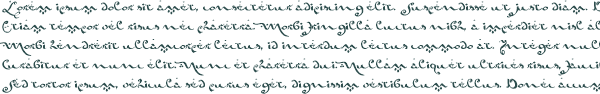 Lorem ipsum dolor sit amet, consectetur adipiscing elit. Suspendisse ut justo diam. D
Etiam tempor vel risus nec pharetra. Morbi fringilla luctus nibh, a imperdiet nisl al
Morbi hendrerit ullamcorper lectus, id interdum lectus commodo at. Integer null
Curabitur et nunc elit. Nunc et pharetra dui. Nullam aliquet ultricies risus,
Sed tortor ipsum, vehicula sed purus eget, dignissim vestibulum tellus. Donec accum